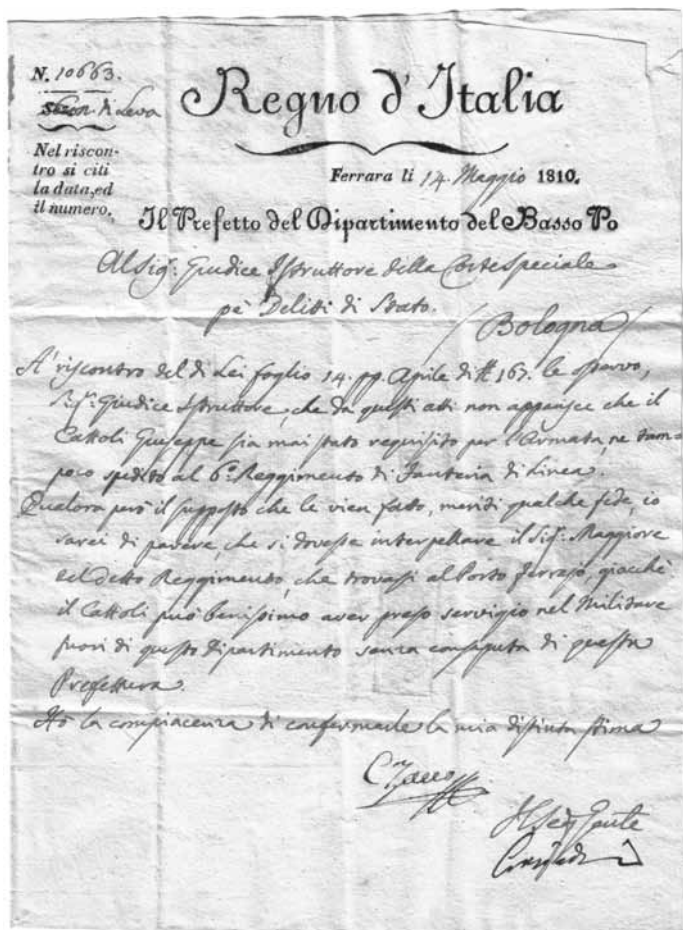 N. 10663.
Sezon. di Leva
Nel riscon-
tro si citi
la data, ed
il numero.
Regno d'Italia
Ferrara li 14. Maggio 1810.
Il Prefetto del Dipartimento del Basso Po
Al Sigr. Giudice Istruttore della Corte Speciale
pe' Delitti di Stato.
Bologna
A' riscontro del di Lei foglio 14. pp. Aprile di N 167. le osservo,
Sigr. Giudice Istruttore, che da questi atti non apparisce che il
Cattoli Giuseppe sia mai stato requisito per l'Armata, ne tam=
poco spedito al 6.o Reggimento di Fanteria di Linea.
Qualora però il supposto che le vien fatto, meriti qualche fede, io
sarei di parere, che si dovesse interpellare il Sigr. Maggiore
del detto Reggimento, che trovasi al Porto ferrajo, giacchè
il Cattoli può benissimo aver preso servigio nel Militare
fuori di questo dipartimento senza consaputa di questa
Prefettura.
Hò la compiacenza di confermarle la mia distinta stima
Il